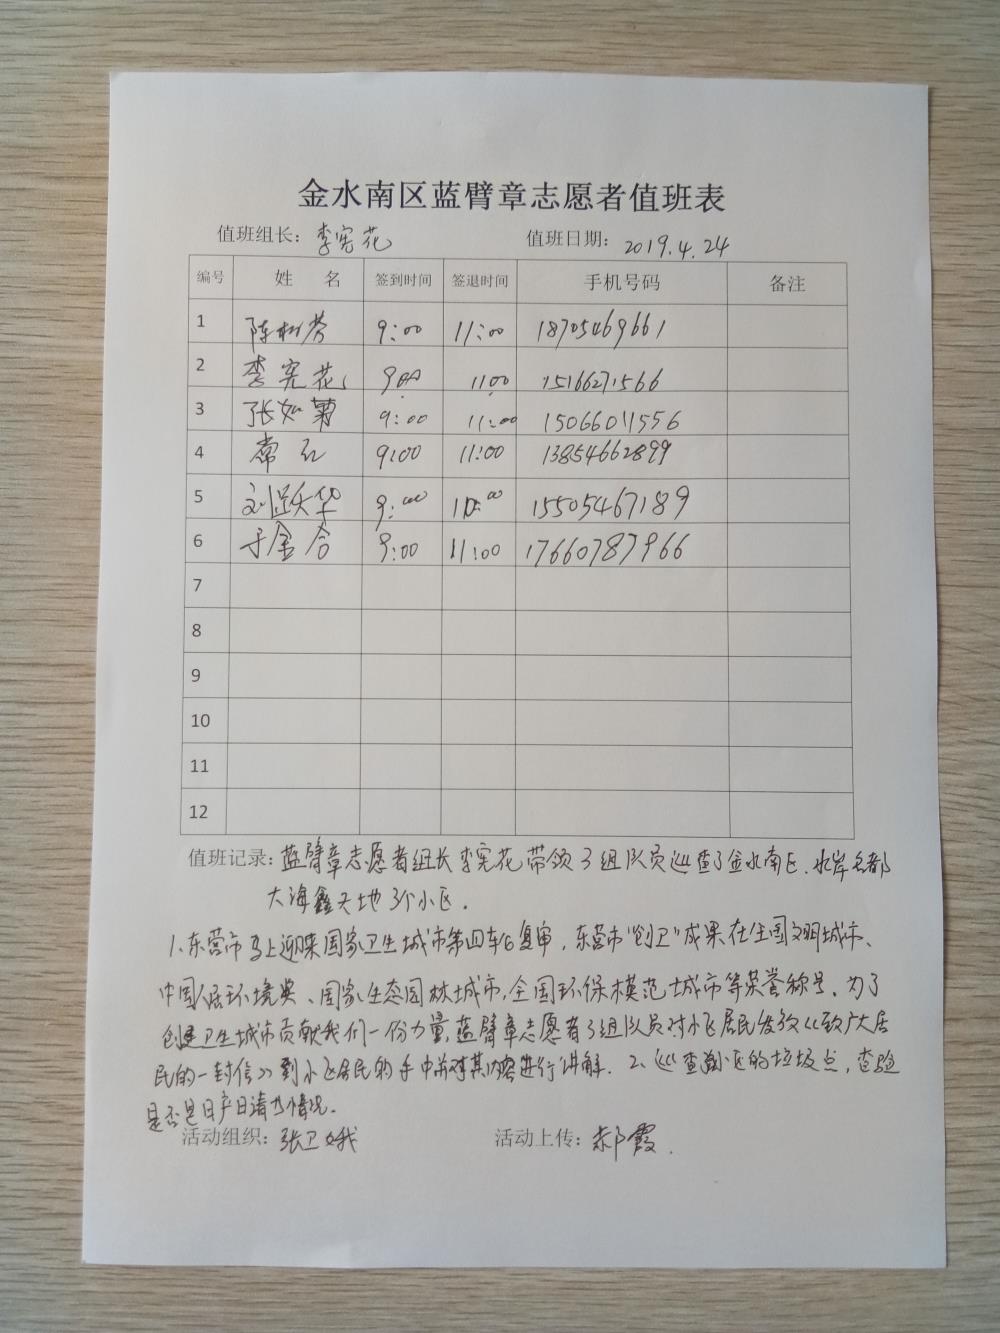 金水南区蓝臂章志愿者值班表
值班组长: 李宪花 值班日期: 2019.4.24
编号 姓 名 签到时间 签退时间 手机号码 备注
1 陈树芬 9:00 11:00 18705469661
2 李宪花 900 1100 15166271566
3 张如菊 9:00 11:00 15066011556
4 常红 9:00 11:00 13854662899
5 刘跃华 9:00 11:00 15505467189
6 于金合 9:00 11:00 17660787966
7
8
9
10
11
12
值班记录: 蓝臂章志愿者组长李宪花带领3组队员巡查了金水南区.水岸名都
大海鑫天地3个小区.
1、东营市马上迎来国家卫生城市第四轮复审,东营市"创卫"成果在全国文明城市、
中国人居环境奖、国家生态园林城市,全国环保模范城市等荣誉称号。为了
创建卫生城市贡献我们一份力量,蓝臂章志愿者3组队员对小区居民发放《致广大居
民的一封信》到小区居民的手中并对其内容进行讲解. 2、巡查小区的垃圾点,查验
是否是日产日清的情况.
活动组织: 张卫娥 活动上传: 郝霞.